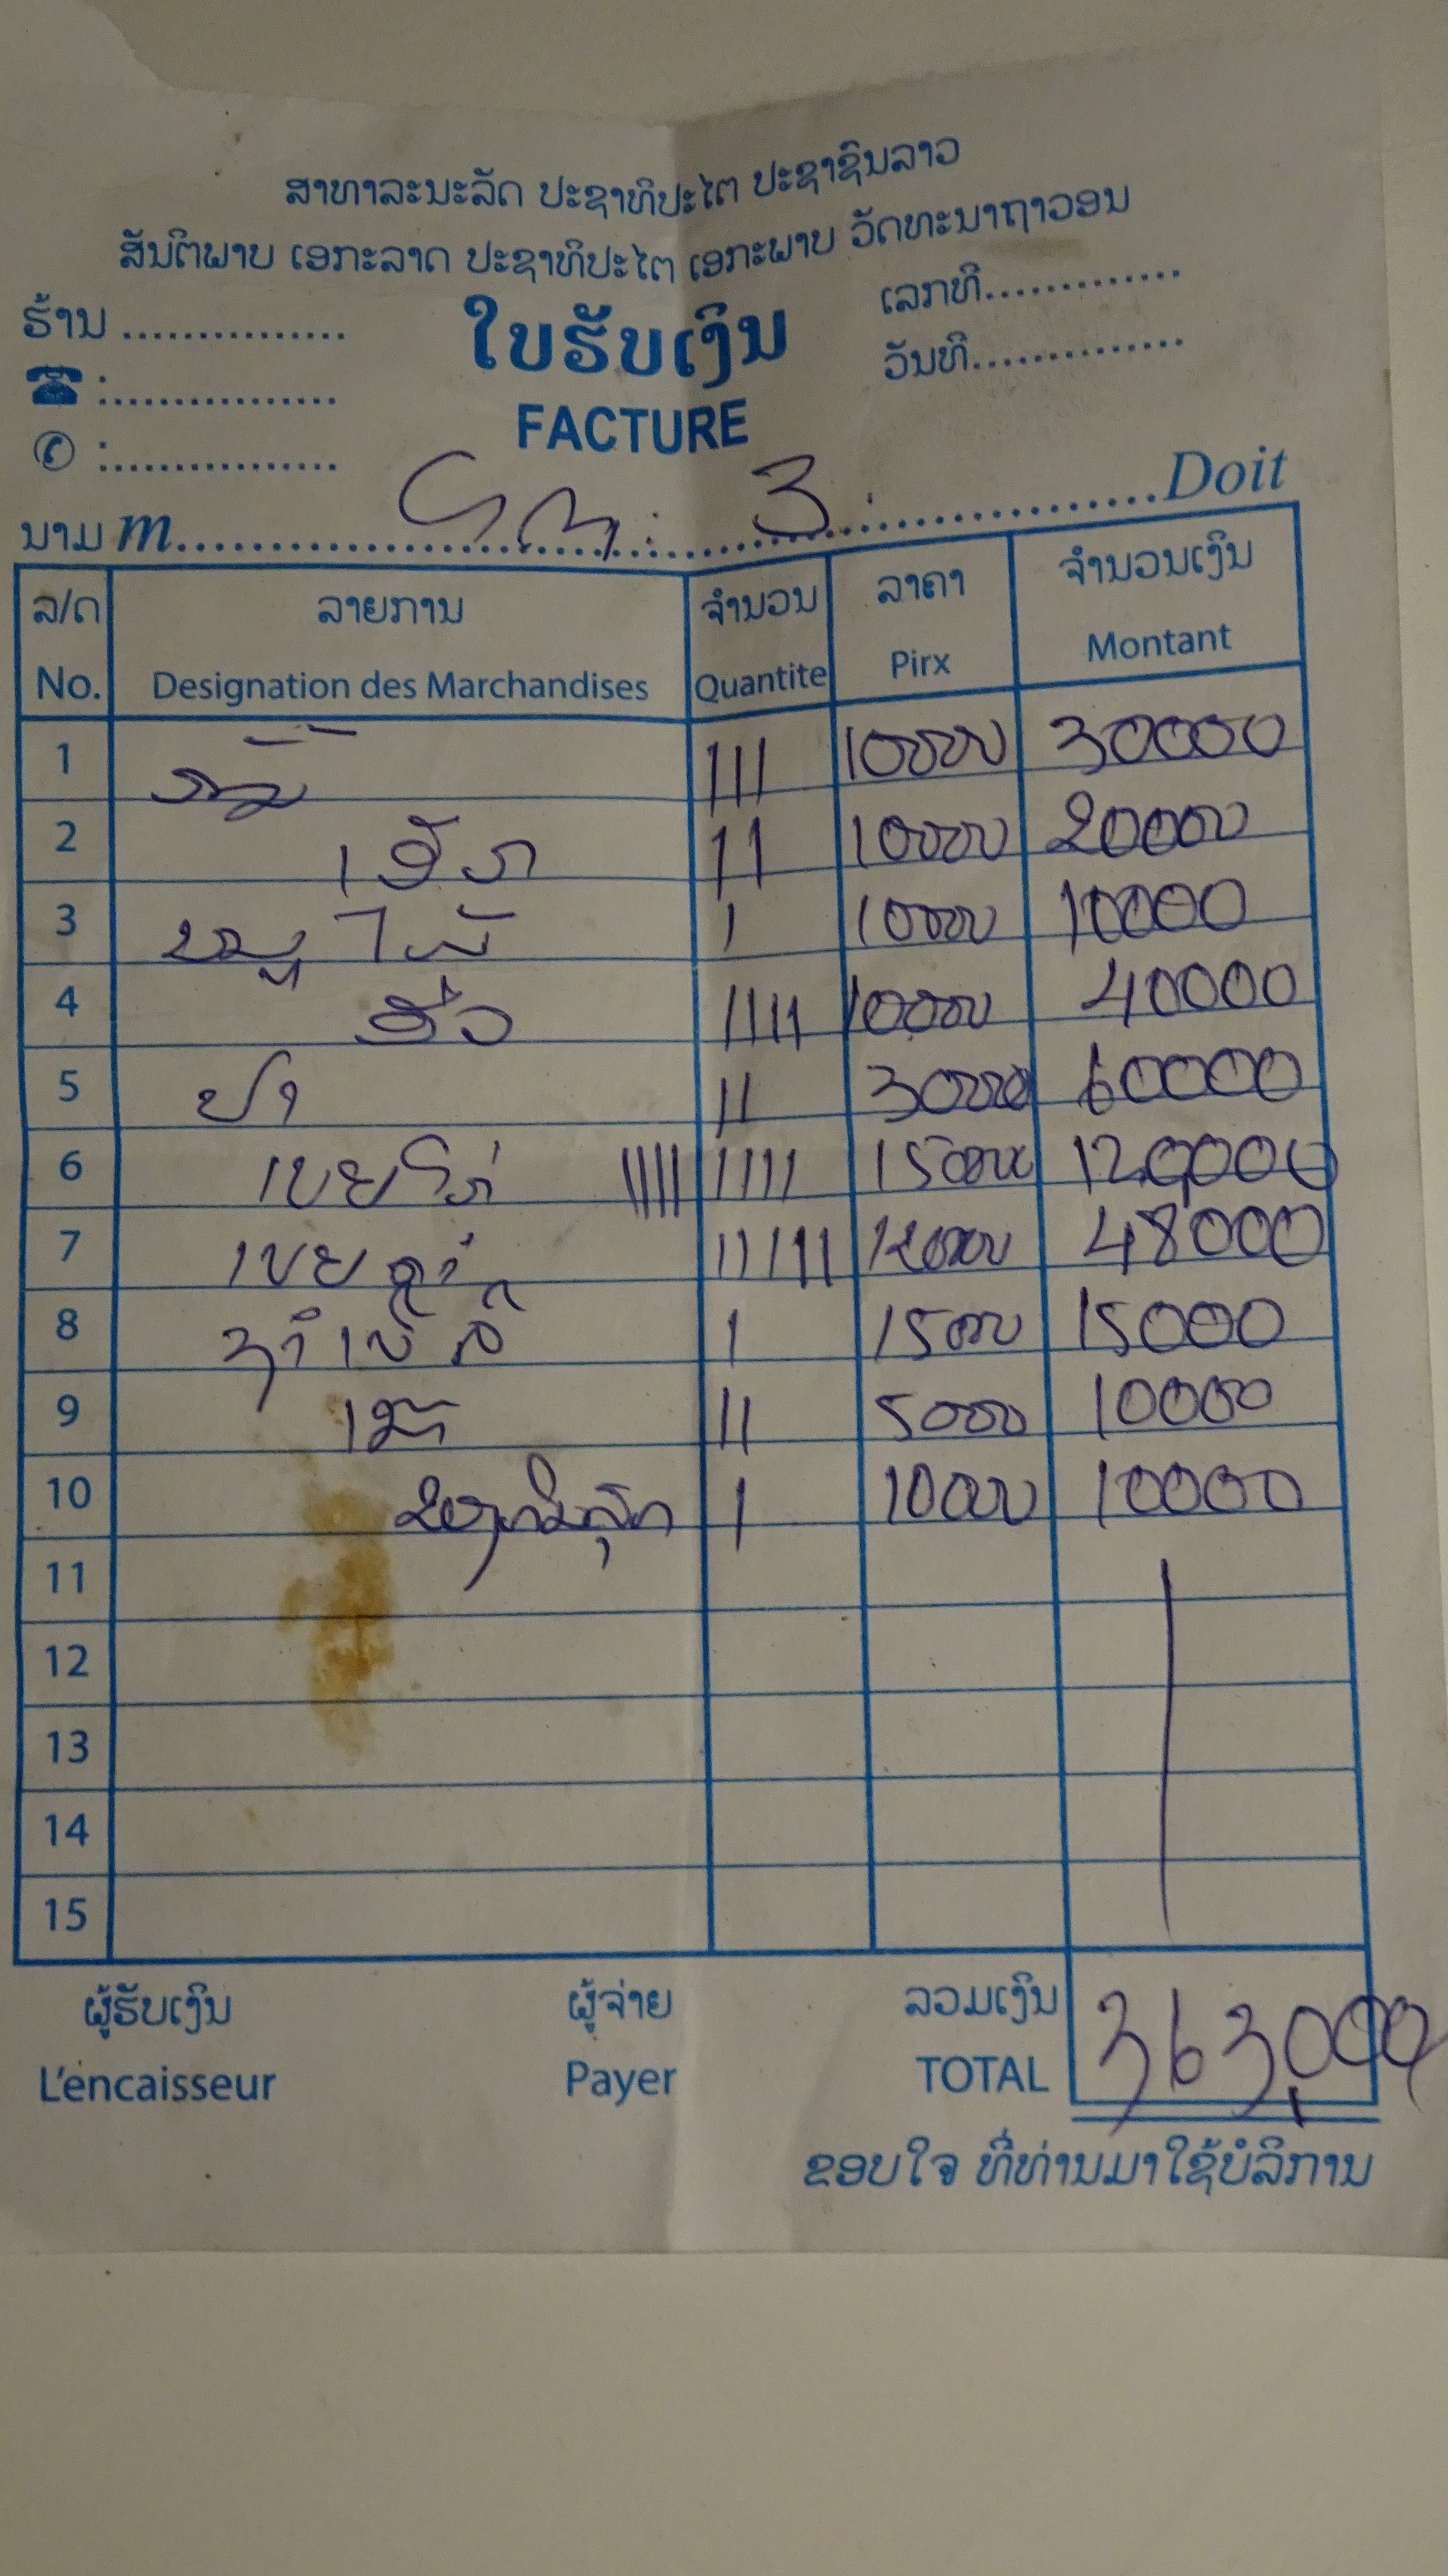 ສາທາລະນະລັດ ປະຊາທິປະໄຕ ປະຊາຊົນລາວ
ສັນຕິພາບ ເອກະລາດ ປະຊາທິປະໄຕ ເອກະພາບ ວັດທະນາຖາວອນ
ຮ້ານ ............... ໃບຮັບເງິນ ເລກທີ..............
☎ :............... FACTURE ວັນທີ..............
✆ :...............
ນາມ m.................... 3 ....................Doit
ລ/ດ ລາຍການ ຈຳນວນ ລາຄາ ຈຳນວນເງິນ
No. Designation des Marchandises Quantite Pirx Montant
1 III 10000 30000
2 II 10000 20000
3 I 10000 10000
4 IIII 10000 40000
5 ປາ II 30000 60000
6 ເບຍ IIII IIII 15000 120,000
7 ເບຍ 12000 48000
8 I 15000 15000
9 II 5000 10000
10 I 10000 10000
11
12
13
14
15
ຜູ້ຮັບເງິນ ຜູ້ຈ່າຍ ລວມເງິນ 363,000
L'encaisseur Payer TOTAL
ຂອບໃຈ ທີ່ທ່ານມາໃຊ້ບໍລິການ